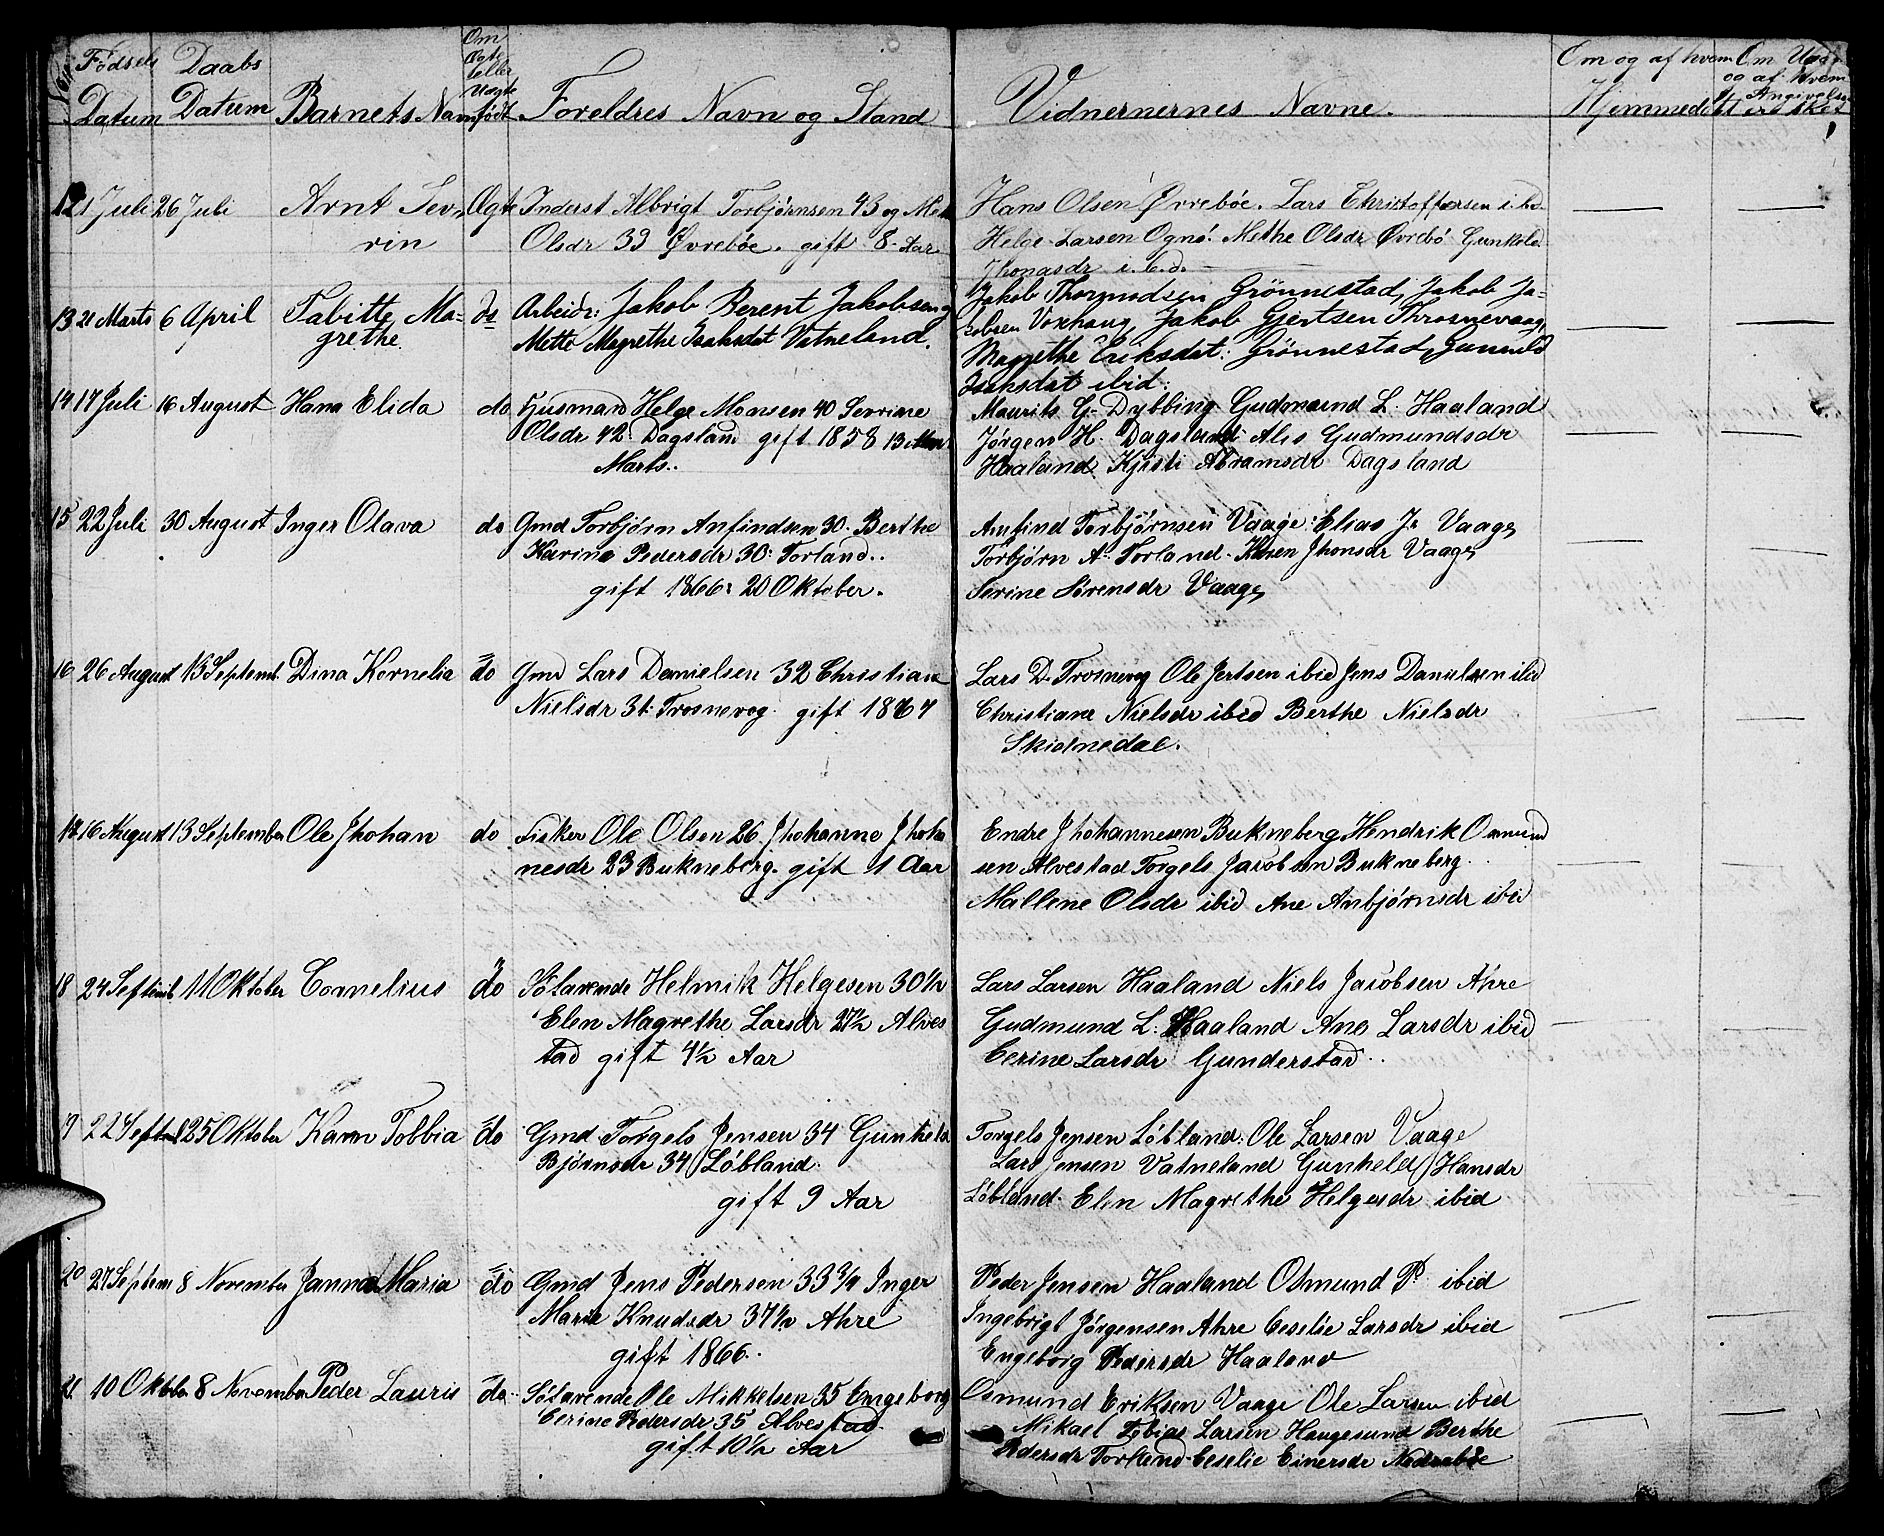 No Fødsels Datum
Daabs Datum
Barnets Navn
Om Ægte eller Uægte født
Foreldres Navn og Stand
Vidnernernes Navne.
Om og af hvem Hjemmedøbt
Om og af hvem Angivelse er sket
12 21 Juli 26 Juli Arnt Sev- Ægte Inderst Albrigt Torbjørnsen 43 og Mette
rin Olsdr 39 Øvrebøe. gift 8 Aar
Hans Olsen Øvrebøe. Lars Christoffersen i. bd.
Helge Larsen Ognø. Methe Olsdr Øvrebø Gunhold
Jhonasdr i. b.d.
13 21 Marts 6 April Tabitte Ma= do Arbeids: Jakob Berent Jakobsen og
grethe Mette Magrethe Isaksdat Vatneland.
Jakob Thormodsen Grönnestad, Jakob Ja=
kobsen Voxhaug, Jakob Gjertsen Throsnevaag,
Magrethe Eriksdat: Grönnestad, Gunnild
Isaksdat ibid:
14 17 Juli 16 August Hana Elida do Husmand Helge Monsen 40 Sevrine
Olsdr 42 Dagsland gift 1858 13
Marts..
Maurits G. Dybbing Gudmaend L. Haaland
Jørgen H. Dagsland Alis Gudmundsdr
Haaland Kjisti Abramsdr Dagsland
15 22 Juli 30 August Inger Olava do Gmd Torbjørn Anfindsen 30. Berthe
Karina Pedersdr 30: Torland..
gift 1866: 20 Oktober.
Anfind Torbjørnsen Vaage: Elias J. Vaage
Torbjørn A. Torland. Karen Jhonsdr Vaage
Serine Sørensdr Vaage
16 26 August 13 Septemt. Dina Kornelia do Gmd Lars Danielsen 32 Christiane
Nielsdr 31. Trosnevog. gift 1867
Lars D. Trosnevog Ole Jertsen ibid Jens Danielsen ibid
Christiane Nielsdr ibid Berthe Nielsdr
Skidnedal.
17 16 August 13 September Ole Jhohan do Fisker Ole Olsen 26 Jhohanne Jhoha
nesdr 23 Bukneberg. gift 1 Aar
Endre Jhohannesen Bukneberg Hendrik Osmund
sen Alvestad Torgels Jacobsen Bukneberg.
Mallene Olsdr ibid Ane Anbjørnsdr ibid
18 24 Septemb 11 Oktober Cornelius do Søfarende Helmik Helgesen 30½
Elen Magrethe Larsdr 27½ Alves
tad gift 4½ Aar
Lars Larsen Haaland Niels Jacobsen Ahre
Gudmund L. Haaland Ane Larsdr ibid
Cerine Larsdr Gunderstad..
19 22 Septem 25 Oktober Karen Tobbia do Gmd Torgels Jensen 34 Gunheld
Bjørnsdr 34 Løbland.
gift 9 Aar
Torgels Jensen Løbland. Ole Larsen Vaage
Lars Jensen Vatneland Gunheld Hansdr
Løbland. Elen Magrethe Helgesdr ibid
20 27 Septem 8 November Janna Maria do Gmd Jens Pedersen 33¾ Inger
Marie Knudsdr 37½ Ahre
gift 1866..
Peder Jensen Haaland Osmund P. ibid
Ingebrigt Jørgensen Ahre Ceselie Larsdr ibid
Engeborg Pedersdr Haaland
21 10 Oktober 8 November Peder Lauris do Søfarende Ole Mikkelsen 35 Engeborg
Cerine Pedersdr 35 Alvestad.
gift 10½ Aar
Osmund Eriksen Vaage Ole Larsen ibid
Mikael Tobias Larsen Haugesund Berthe
Pedersdr Torland Ceselie Einersdr Nedrebøe